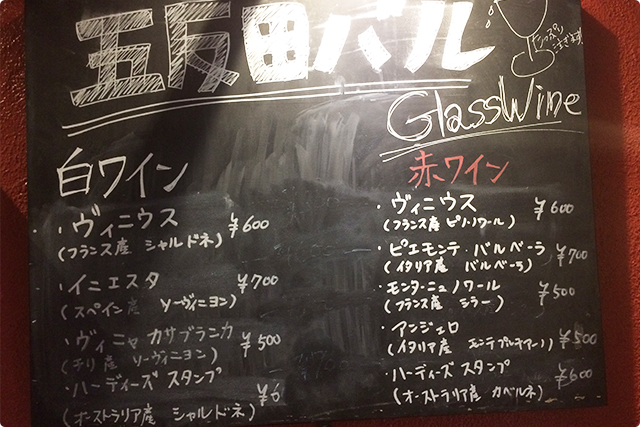 五反田バル
たっぷり
注ぎます
GlassWine
白ワイン
・ヴィニウス ¥600
(フランス産 シャルドネ)
・イニエスタ ¥700
(スペイン産 ソーヴィニヨン)
・ヴィニャ カサブランカ ¥500
(チリ産 ソーヴィニヨン)
・ハーディーズ スタンプ ¥6
(オーストラリア産 シャルドネ)
赤ワイン
・ヴィニウス ¥600
(フランス産 ピノ・ノワール)
・ピエモンテ・バルベーラ ¥700
(イタリア産 バルベーラ)
・モンタ・ニュノワール ¥500
(フランス産 シラー)
・アンジェロ ¥500
(イタリア産
・ハーディーズ スタンプ ¥600
(オーストラリア産 カベルネ)